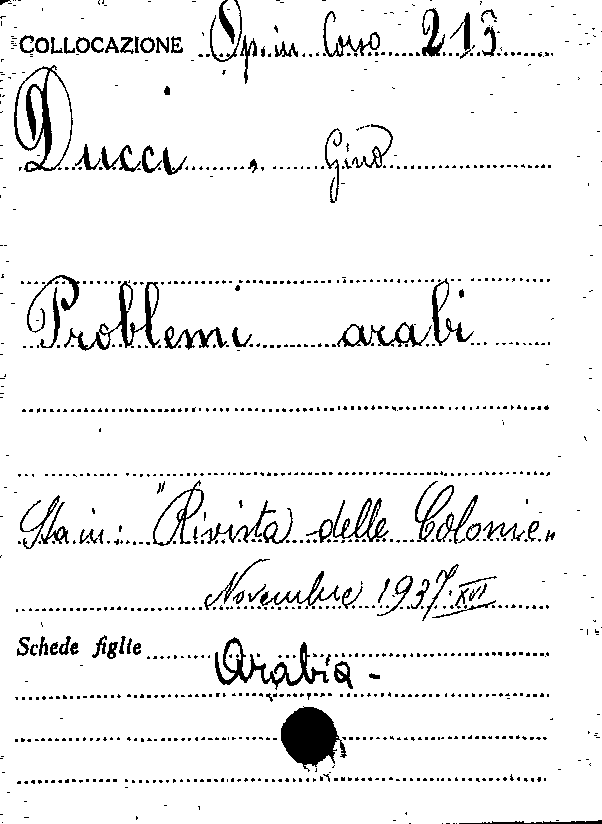 COLLOCAZIONE Op. in Corso 213
Ducci, Gino
Problemi arabi
Sta in: "Rivista delle Colonie"
Novembre 1937. XVI
Schede figlie Arabia -